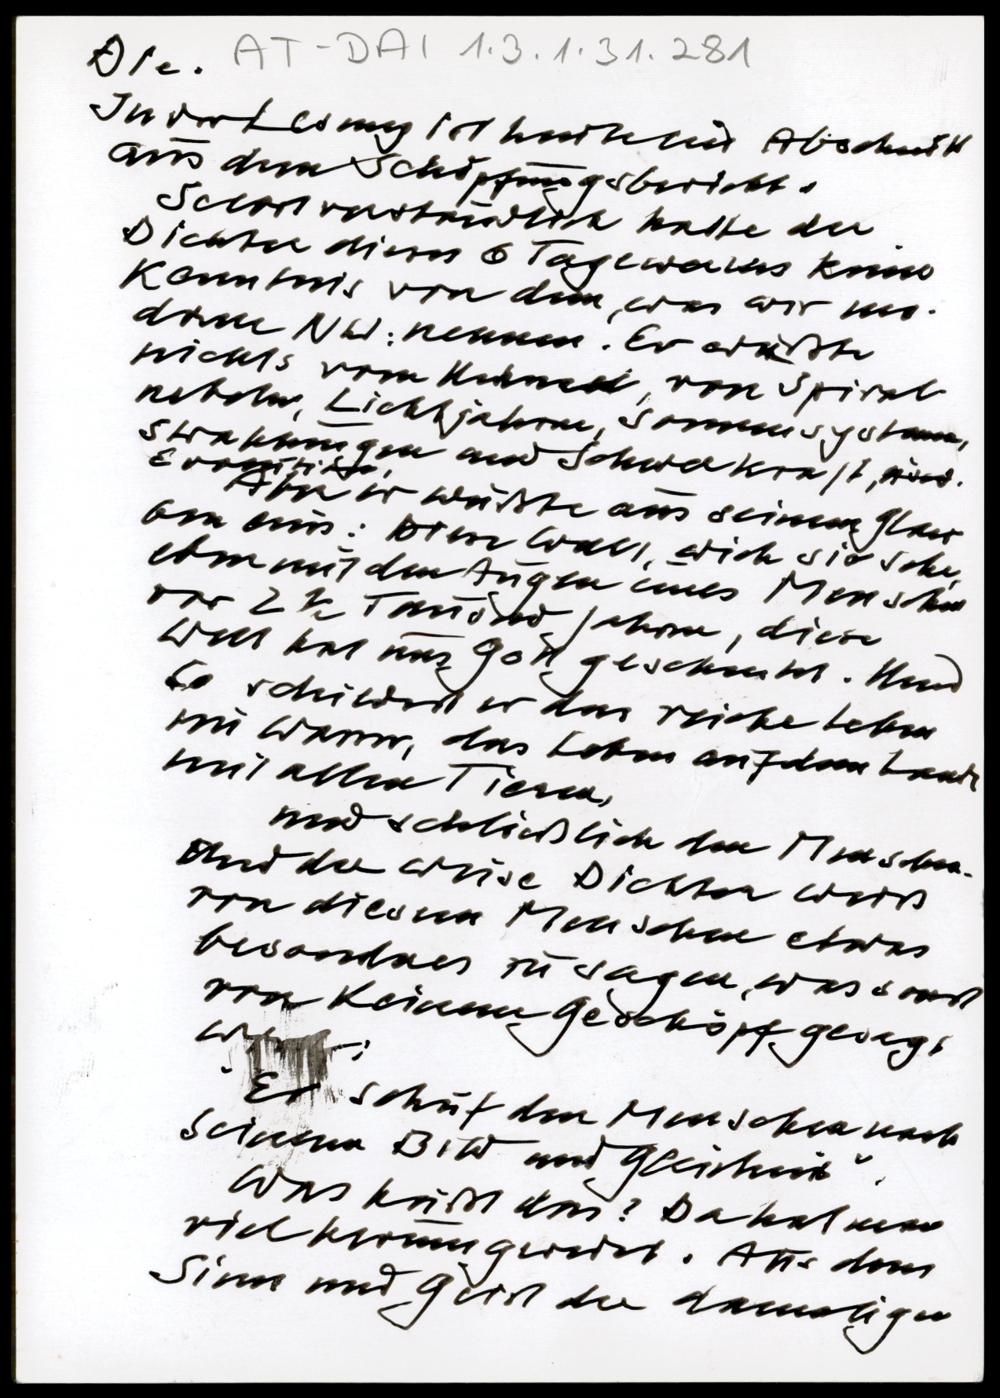 Die. AT-DAI 1.3.1.31.281
In der Lesung ist heute ein Abschnitt
aus dem Schöpfungsbericht.
Selbstverständlich hatte der
Dichter dieses 6 Tagewerkes keine
Kenntnis von dem, was wir mo-
derne NW: nennen. Er wußte
nichts vom, von Spiral
nebeln, Lichtjahren, Sonnensystemen,
Strahlungen und Schwerkraft, und.
Evolution,
Aber er wußte aus seinem Glau
ben eins: Diese Welt, wie ich sie sehe,
eben mit den Augen eines Menschen
vor 2 ½ Tausend Jahren, diese
Welt hat uns Gott geschenkt. Und
so schildert er das reiche Leben
im Wasser, das Leben auf dem Lande
mit allen Tieren,
und schließlich den Menschen.
Und der weise Dichter weiß
von diesem Menschen etwas
besonderes zu sagen, was sonst
von keinem Geschöpf gesagt
:
"Er schuf den Menschen nach
seinem Bild und Gleichnis".
Was heißt das? Da hat man
viel herumgeredet. Aus dem
Sinn und Geist der damaligen